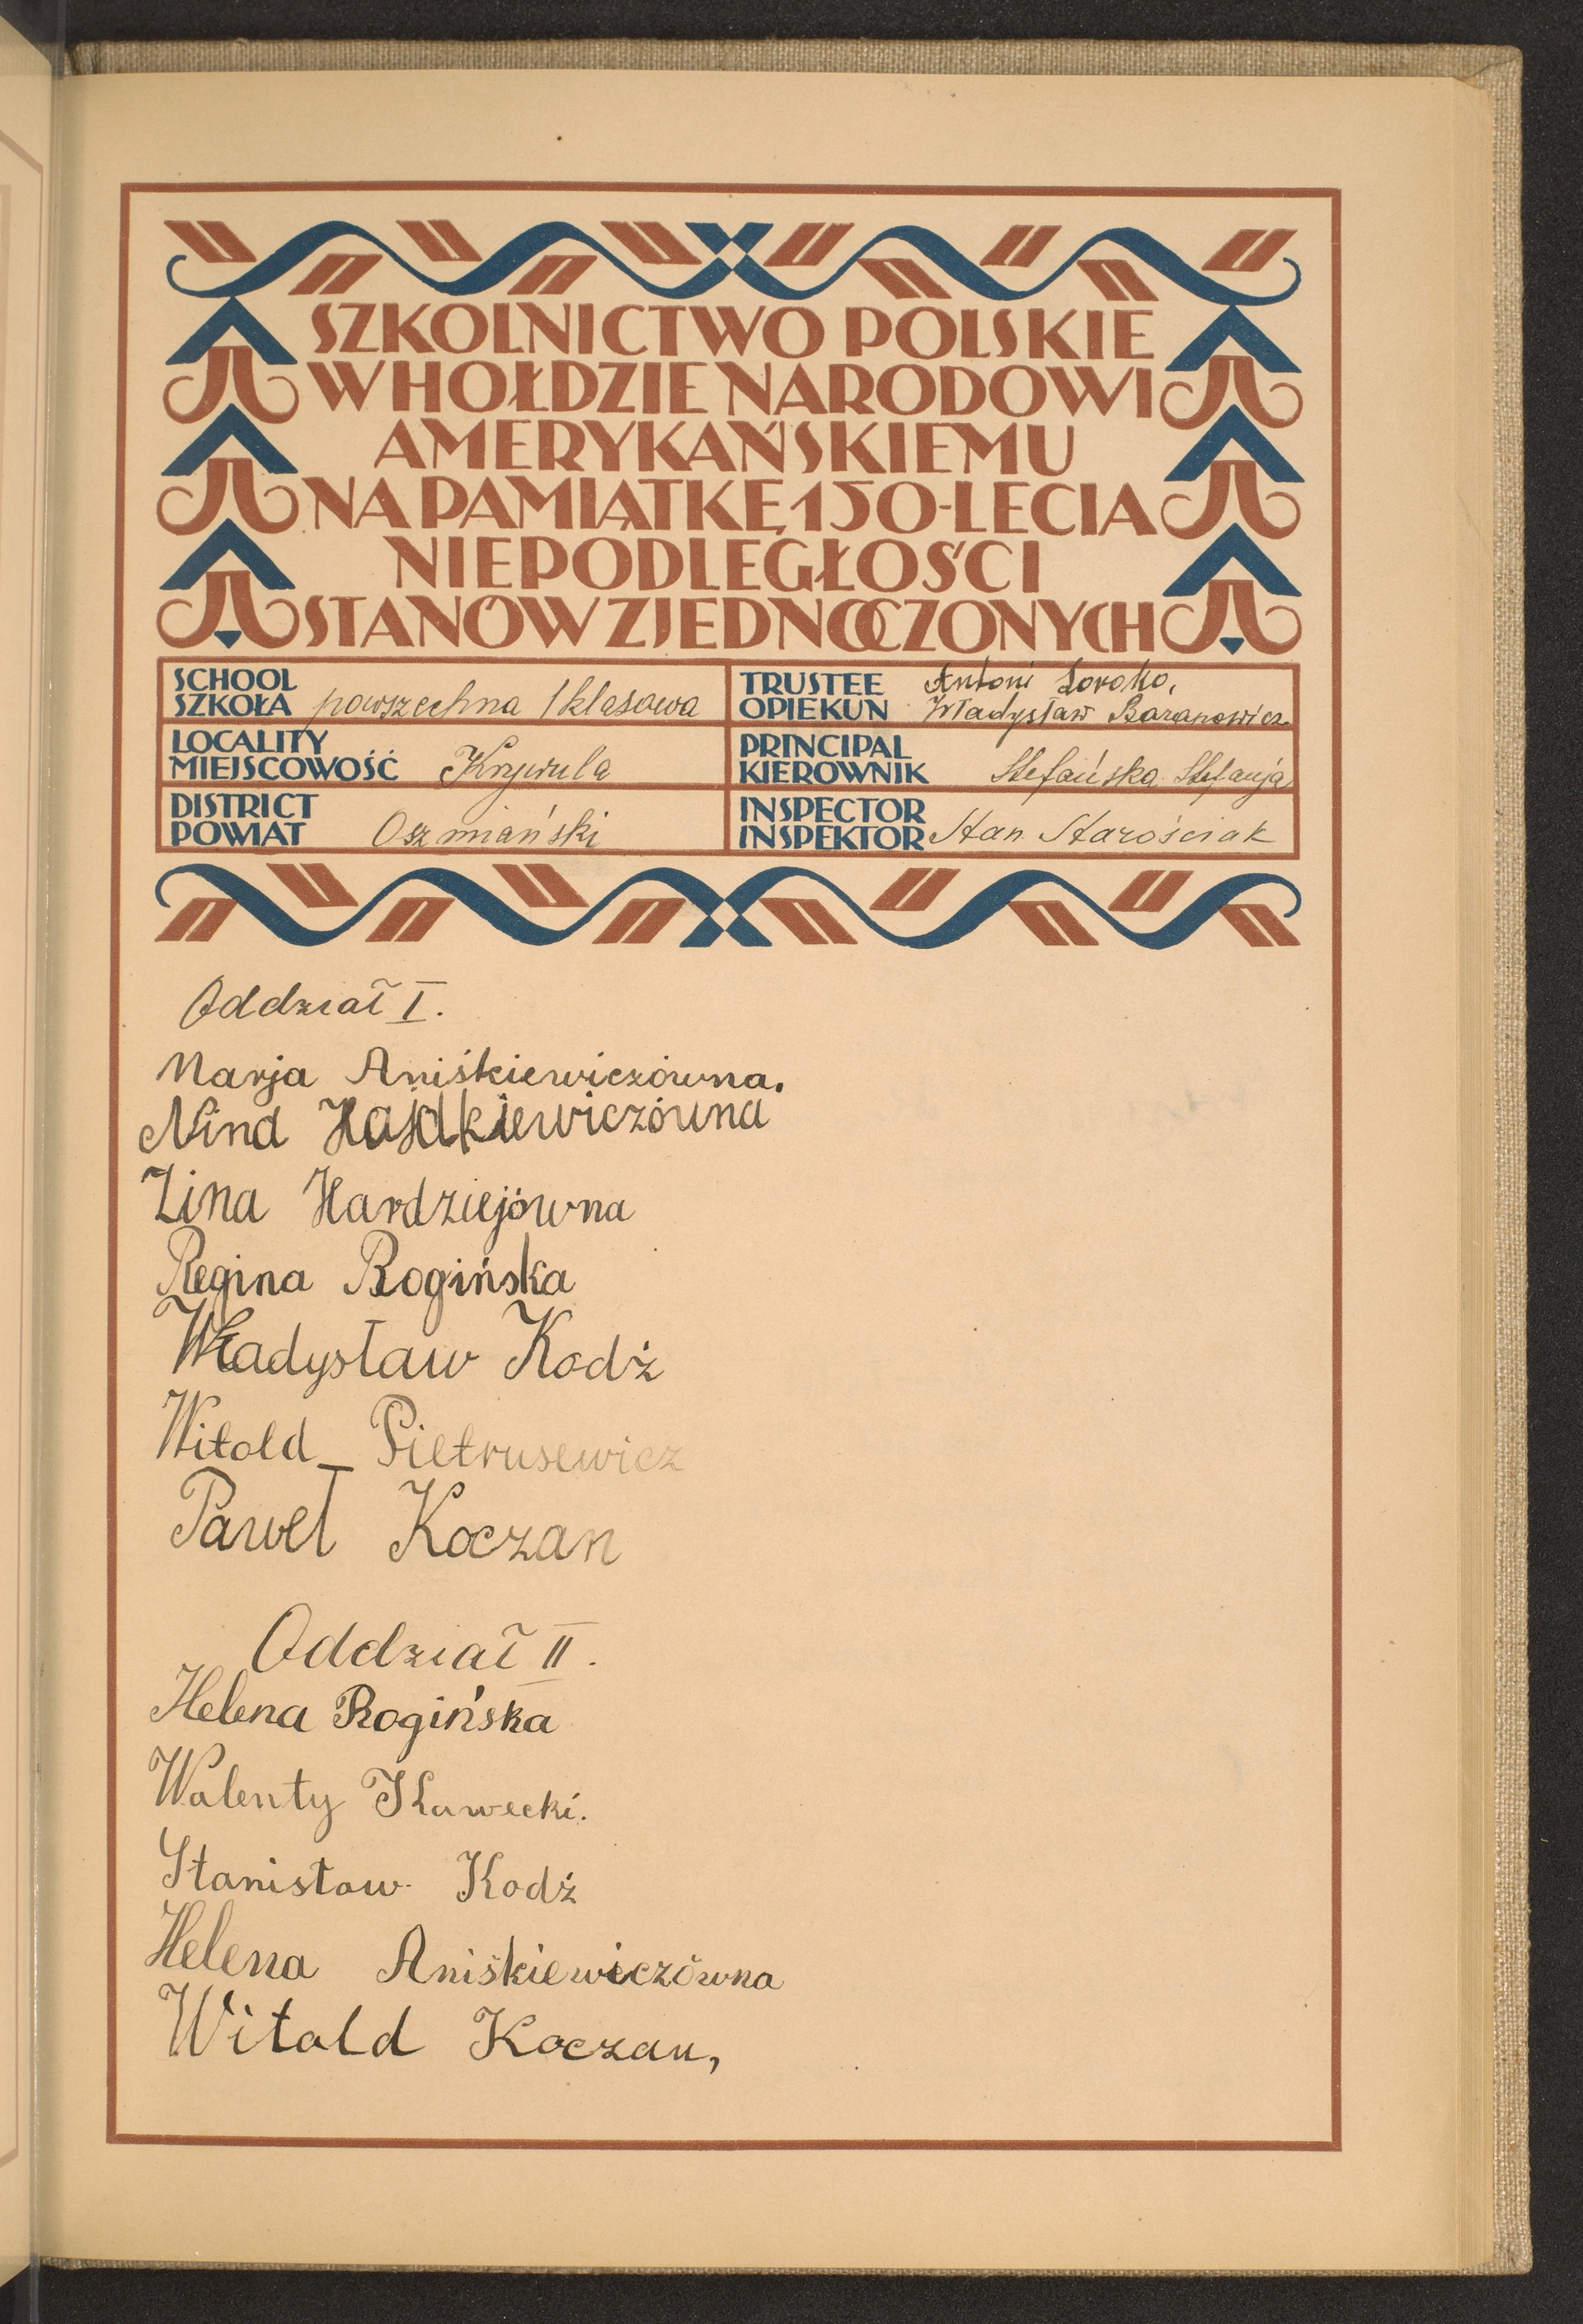 SZKOLNICTWO POLSKIE
W HOŁDZIE NARODOWI
AMERYKAŃSKIEMU
NA PAMIĄTKĘ 150-LECIA
NIEPODLEGŁOŚCI
STANÓW ZJEDNOCZONYCH
SCHOOL
SZKOŁA powszechna 1 klasowa
LOCALITY
MIEJSCOWOŚĆ Krywula
DISTRICT
POWIAT Oszmiański
TRUSTEE Antoni Soroko,
OPIEKUN Władysław Baranowicz
PRINCIPAL
KIEROWNIK Stefańska Stefanja
INSPECTOR
INSPEKTOR Stan Starościak
Oddział I.
Marja Aniśkiewiczówna.
Nina Hajdkiewiczówna
Zina Hardziejówna
Regina Rogińska
Władysław Kodź
Witold Pietrusewicz
Paweł Koczan
Oddział II.
Helena Rogińska
Walenty Kawecki.
Stanisław Kodź
Helena Aniśkiewiczówna
Witold Koczan,